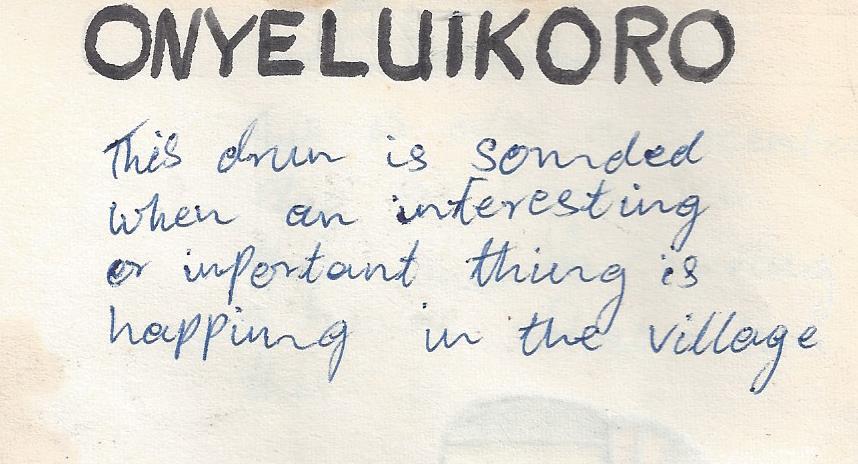 ONYELUIKORO
This drum is sounded
when an interesting
or inportant thing is
happing in the village